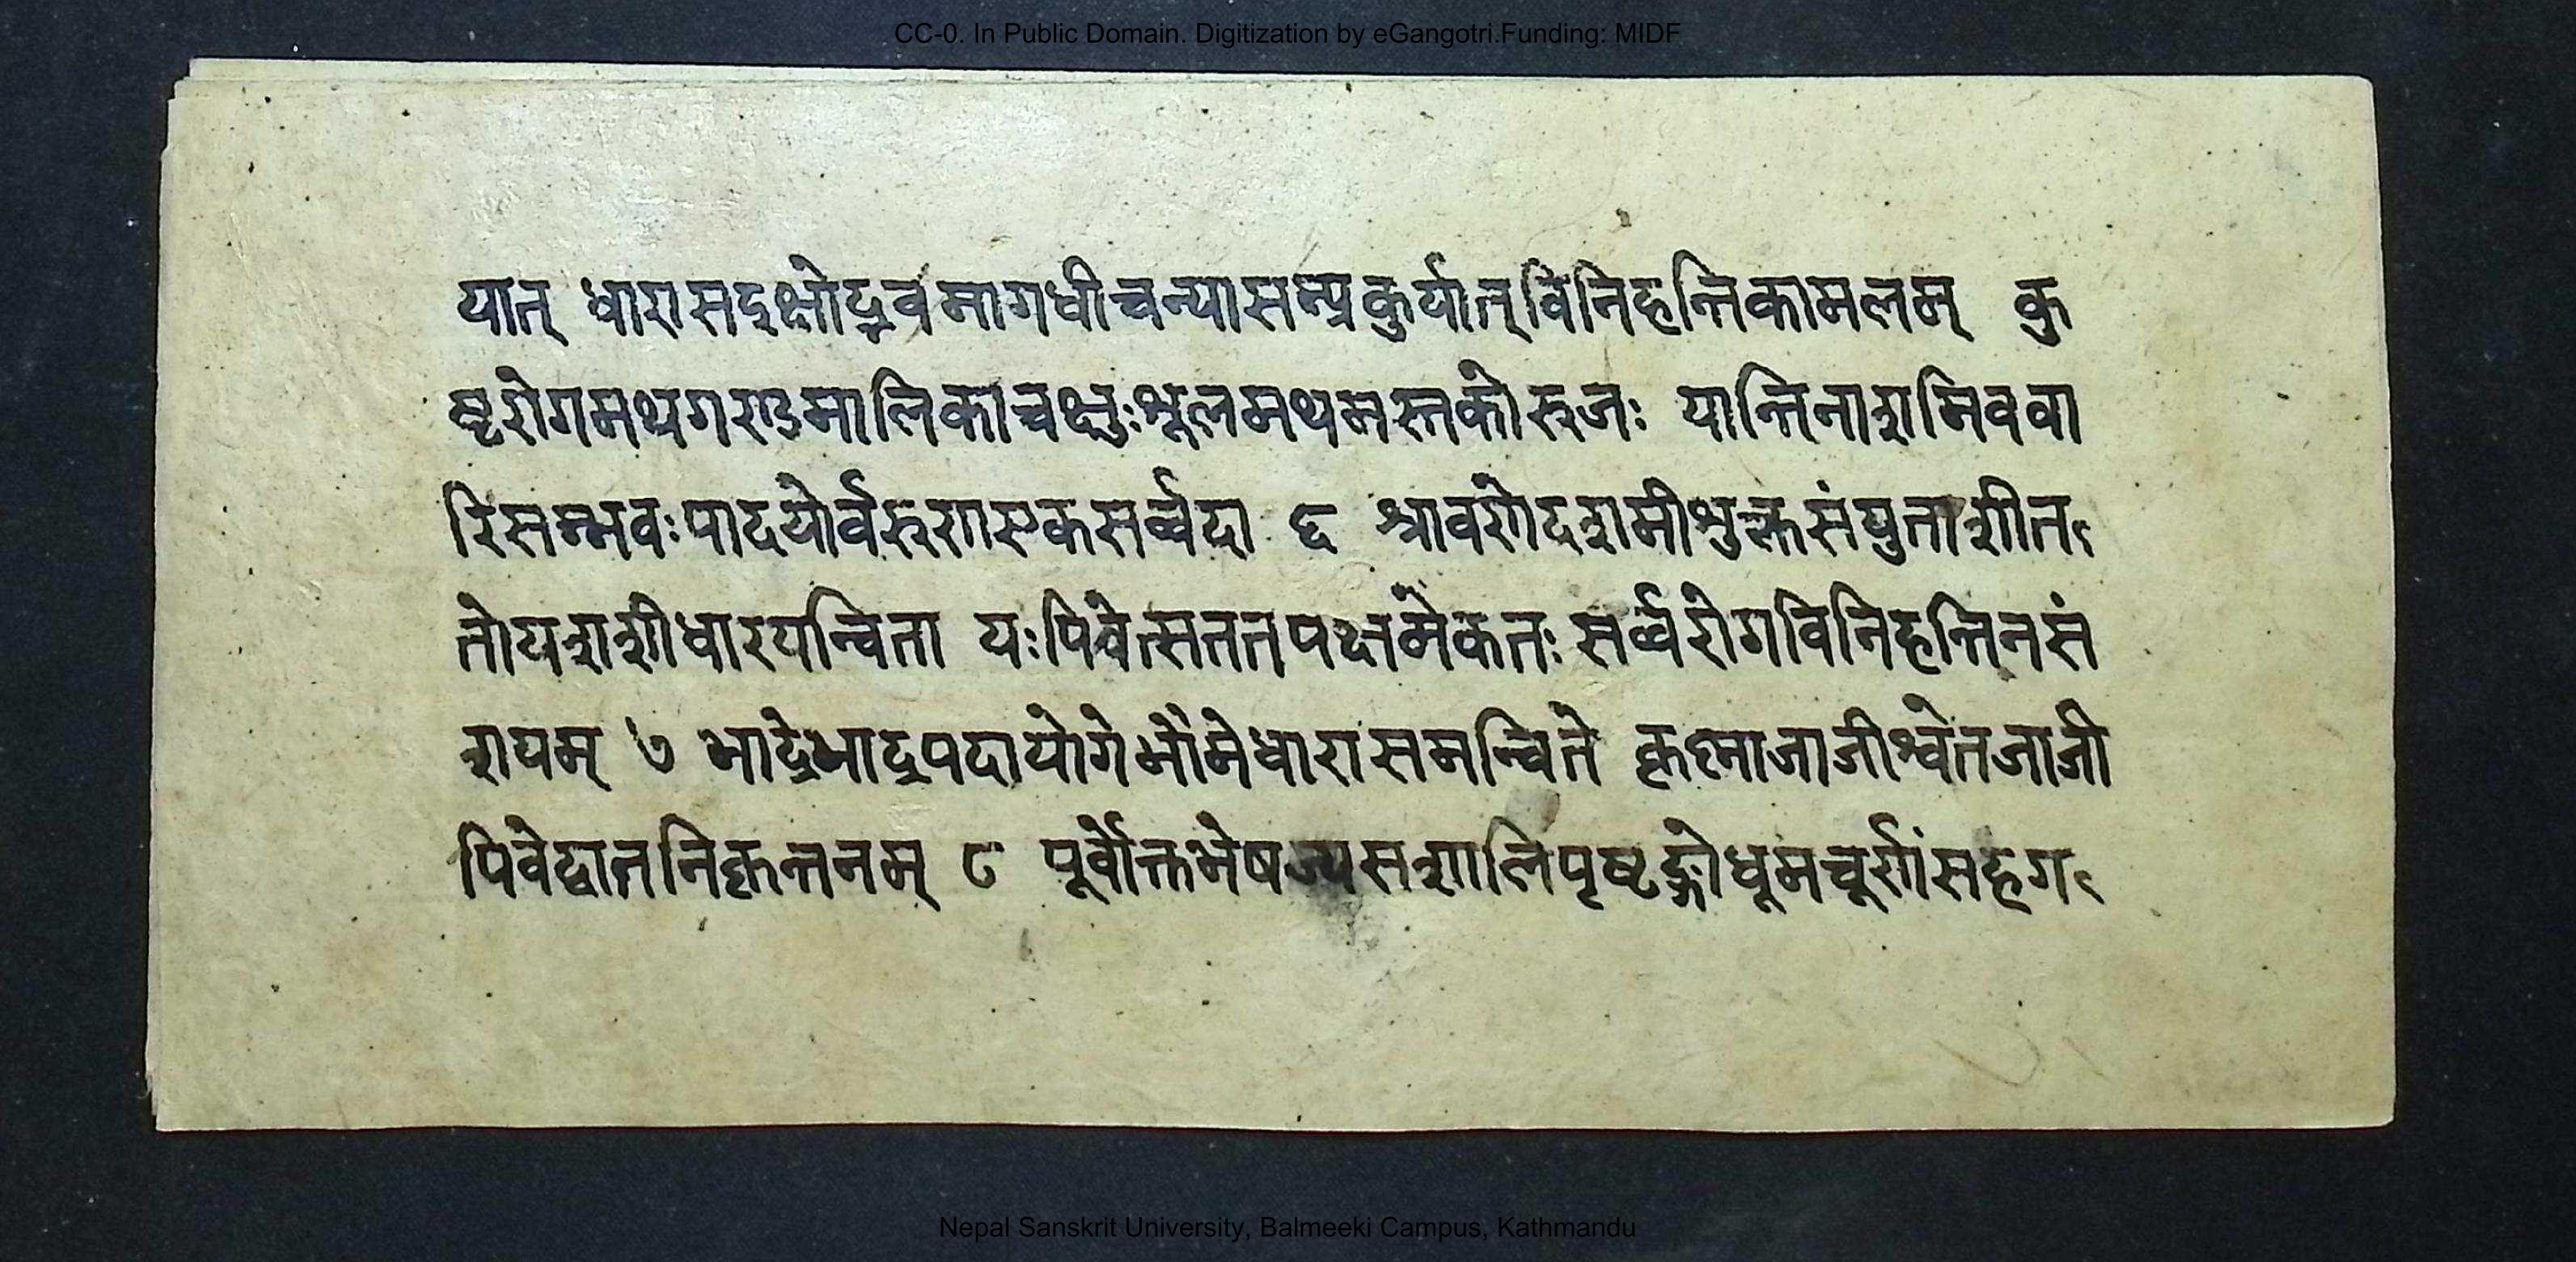 CC-0. In Public Domain. Digitization by eGangotri.Funding: MIDF
यात् धारासदक्षोद्रवमागधीचन्यासम्प्रकुर्यात्विनिहन्तिकामलम् कु
ष्टरोगमथगण्डमालिकाचक्षुःश्रूलमथमस्तकोरुजः यान्तिनाशमिववा
रिसम्भवःपादयोर्वरुग्णास्एकसर्व्वदा ६ श्रावणेदशमीश्रुक्लसंयुताशीत
तोयशशीधारयन्विता यःपिवेत्सततपक्षमेकतः सर्व्वरोगविनिहन्तिनसं
शयम् ७ भाद्रेभाद्रपदायोगेभौमेधारासमन्विते कृष्णाजाजीश्वेतजाजी
पिवेद्वातनिकृन्तनम् ८ पूर्वोक्तभेषज्यसशालिपृष्टङ्गोधूमचूर्णंसहग
Nepal Sanskrit University, Balmeeki Campus, Kathmandu